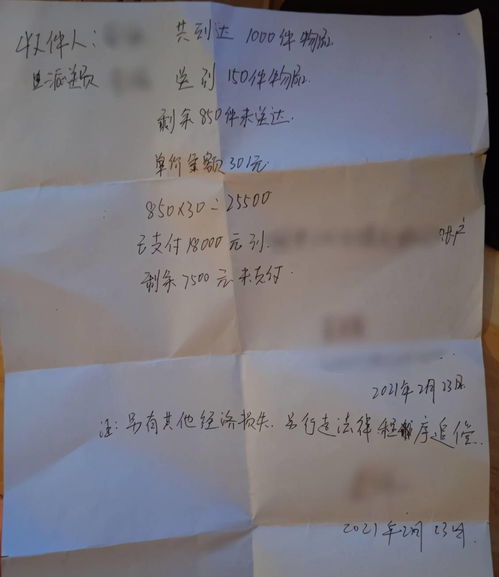 收件人: 共到达 1000件物品
送到150件物品.
剩余850件未送达.
单价金额30元
850×30=25500
已支付18000元到 账户
剩余7500元未支付.
2021年2月23日
注:另有其他经济损失.另行走法律程序追偿.
2021年2月23日.